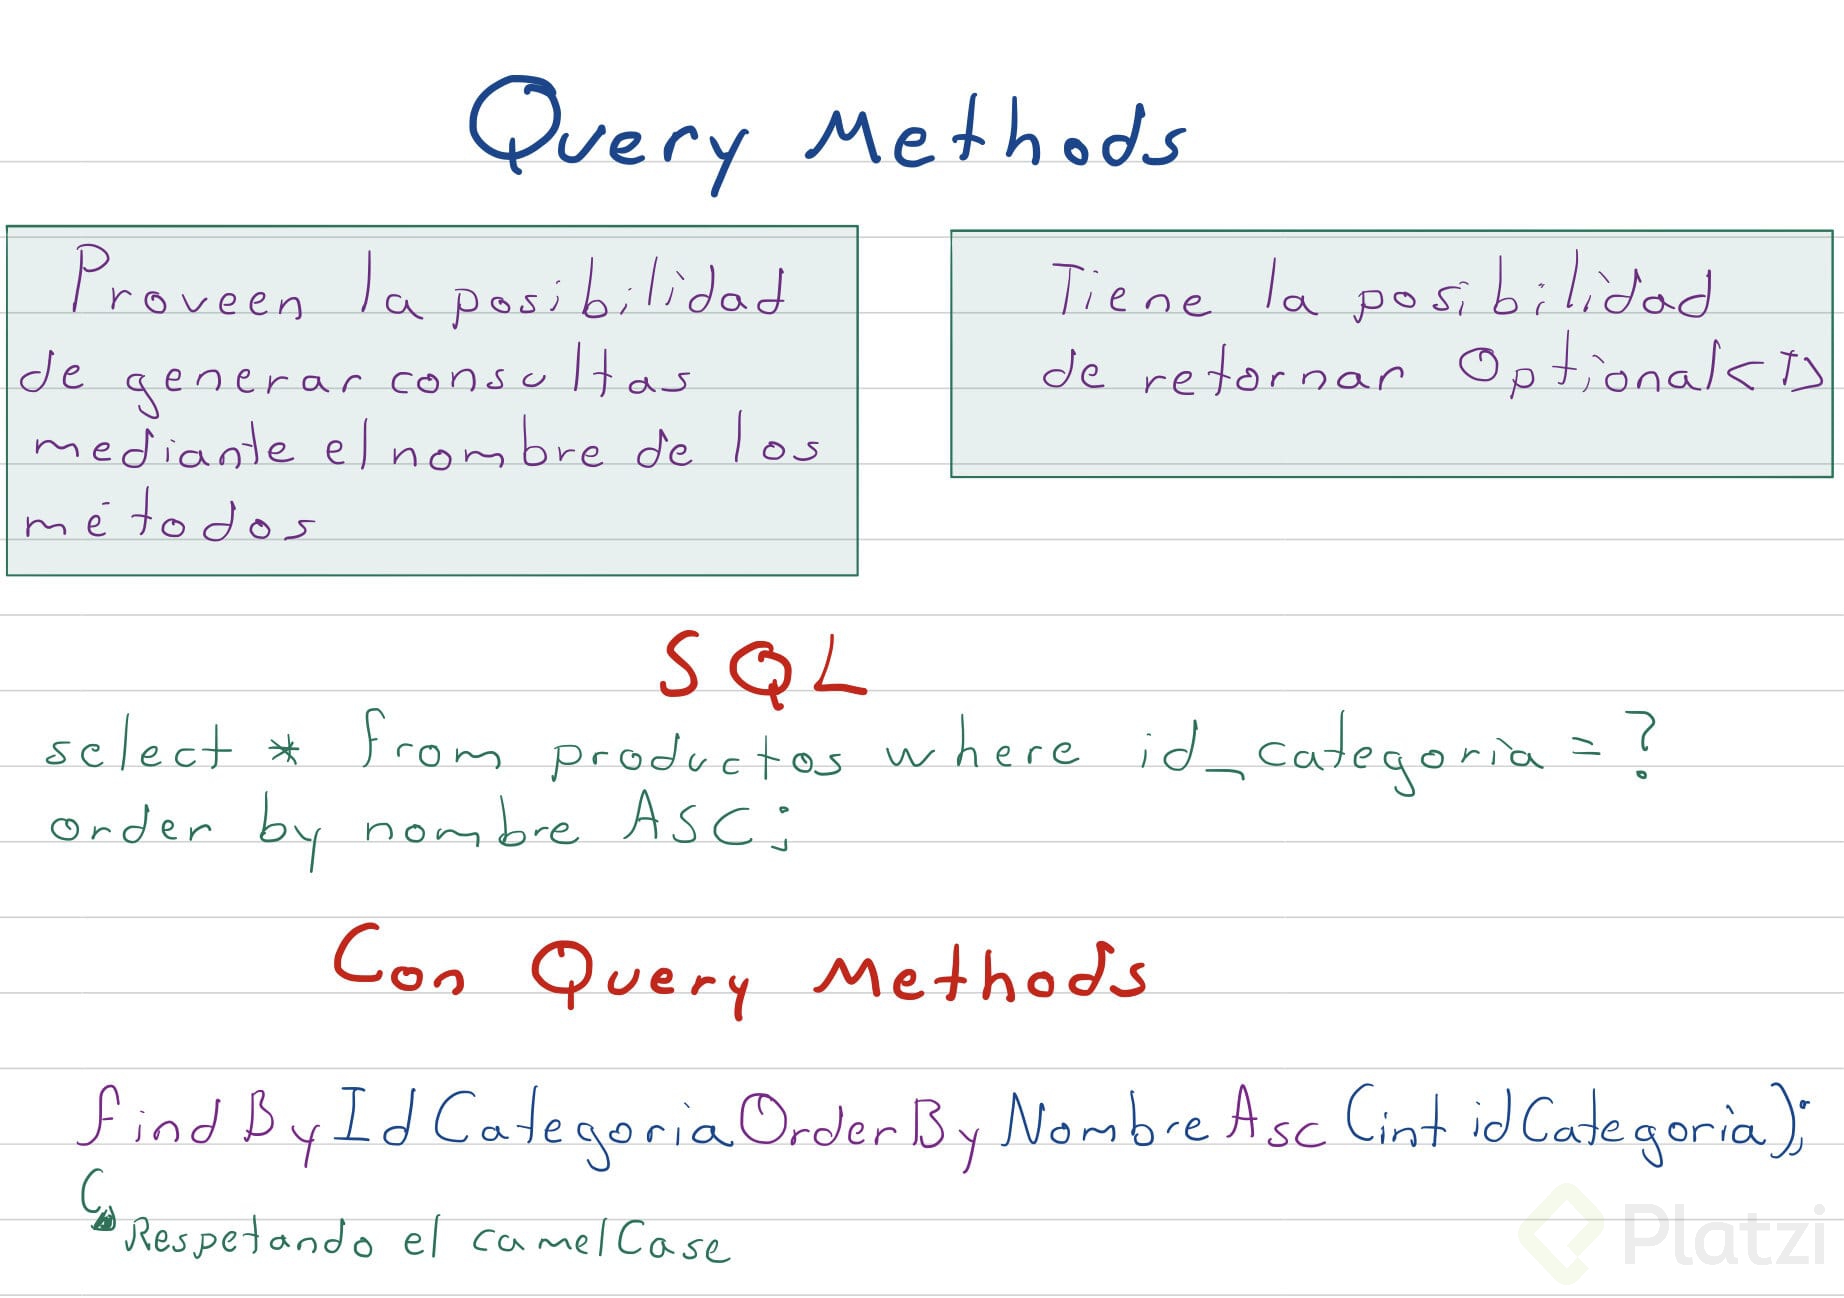 Query Methods
Proveen la posibilidad
de generar consultas
mediante el nombre de los
métodos
Tiene la posibilidad
de retornar Optional<T>
SQL
select * from productos where id_categoria = ?
order by nombre ASC;
Con Query Methods
findByIdCategoriaOrderByNombreAsc(int idCategoria);
Respetando el camelCase
Platzi